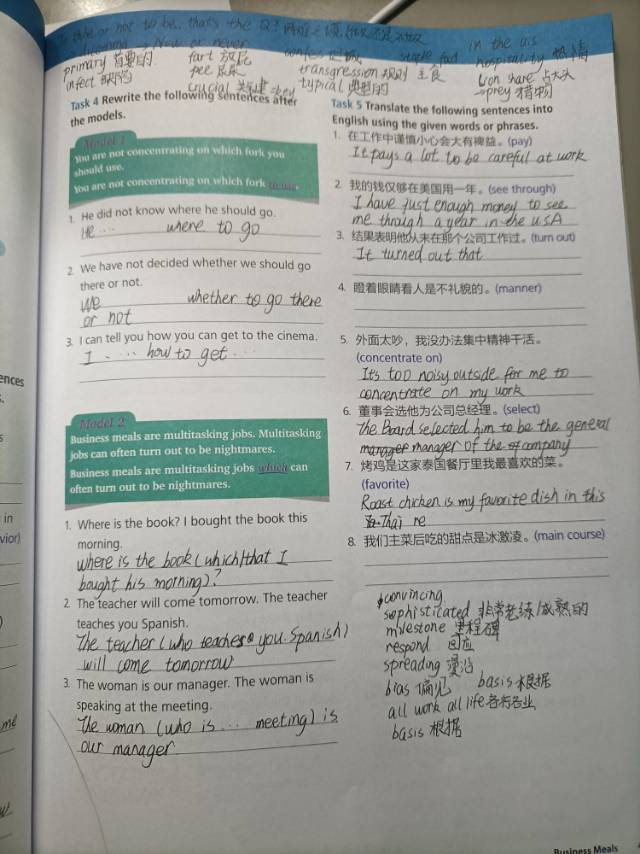 To be or not to be. that's the Q!
Now or never
in the U.S
primary 首要的
fart 放屁
staple food
hospitality 热情
infect
pee 尿尿
transgression
主食
Lion share 占大头
crucial 关键 key
typical 典型的
→prey 猎物
Task 4 Rewrite the following sentences after
the models.
Model 1
You are not concentrating on which fork you
should use.
You are not concentrating on which fork to use.
1. He did not know where he should go.
He ... where to go
2 We have not decided whether we should go
there or not.
We whether to go there
or not
3 I can tell you how you can get to the cinema.
I .... how to get ...
Model 2
Business meals are multitasking jobs. Multitasking
jobs can often turn out to be nightmares.
Business meals are multitasking jobs which can
often turn out to be nightmares.
1. Where is the book? I bought the book this
morning.
where is the book (which/that I
bought his morning)?
2 The teacher will come tomorrow. The teacher
teaches you Spanish.
The teacher (who teaches you Spanish)
will come tomorrow
3. The woman is our manager. The woman is
speaking at the meeting.
The woman (who is ... meeting) is
our manager
Task 5 Translate the following sentences into
English using the given words or phrases.
1. 在工作中谨慎小心会大有裨益。(pay)
It pays a lot to be careful at work
2. 我的钱仅够在美国用一年。(see through)
I have just enough money to see
me through a year in the USA
3. 结果表明他从未在那个公司工作过。(turn out)
It turned out that
4. 瞪着眼睛看人是不礼貌的。(manner)
5. 外面太吵，我没办法集中精神干活。
(concentrate on)
It's too noisy outside for me to
concentrate on my work
6. 董事会选他为公司总经理。(select)
the Board selected him to be the general
manager of the company
7. 烤鸡是这家泰国餐厅里我最喜欢的菜。
(favorite)
Roast chicken is my favorite dish in this
Thai re
8. 我们主菜后吃的甜点是冰激凌。(main course)
convincing
sophistitated 非常老练/成熟的
milestone 里程碑
respond 回应
spreading 蔓延
bias 偏见 basis 根据
all work all life 各行各业
basis 根据
ences
in
vior)
me
Business Meals